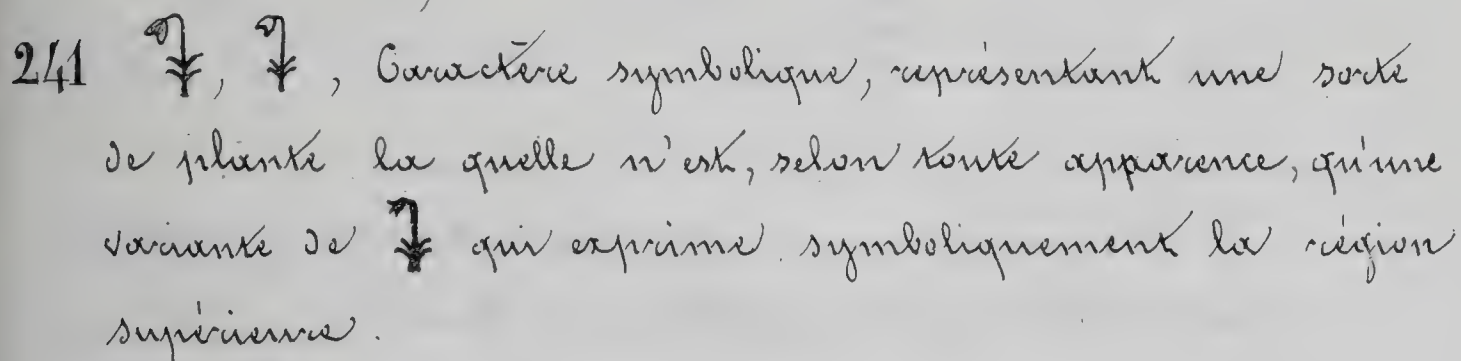 241 𓇗, 𓇗, Caractère symbolique, représentant une sorte
de plante la quelle n'est, selon toute apparence, qu'une
variante de 𓇗 qui exprime symboliquement la région
supérieure.